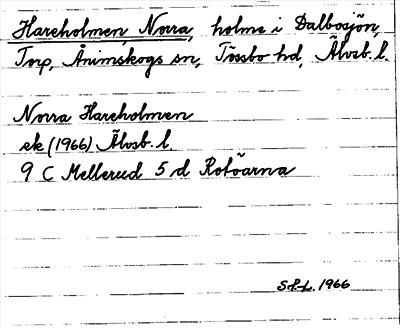 Hareholmen, Norra, holme i Dalbosjön,
Torp, Ånimskogs sn, Tössbo hd, Älvsb. l.
Norra Hareholmen
ek (1966) Älvsb. l.
9 C Mellerud 5 d Rotöarna
1966